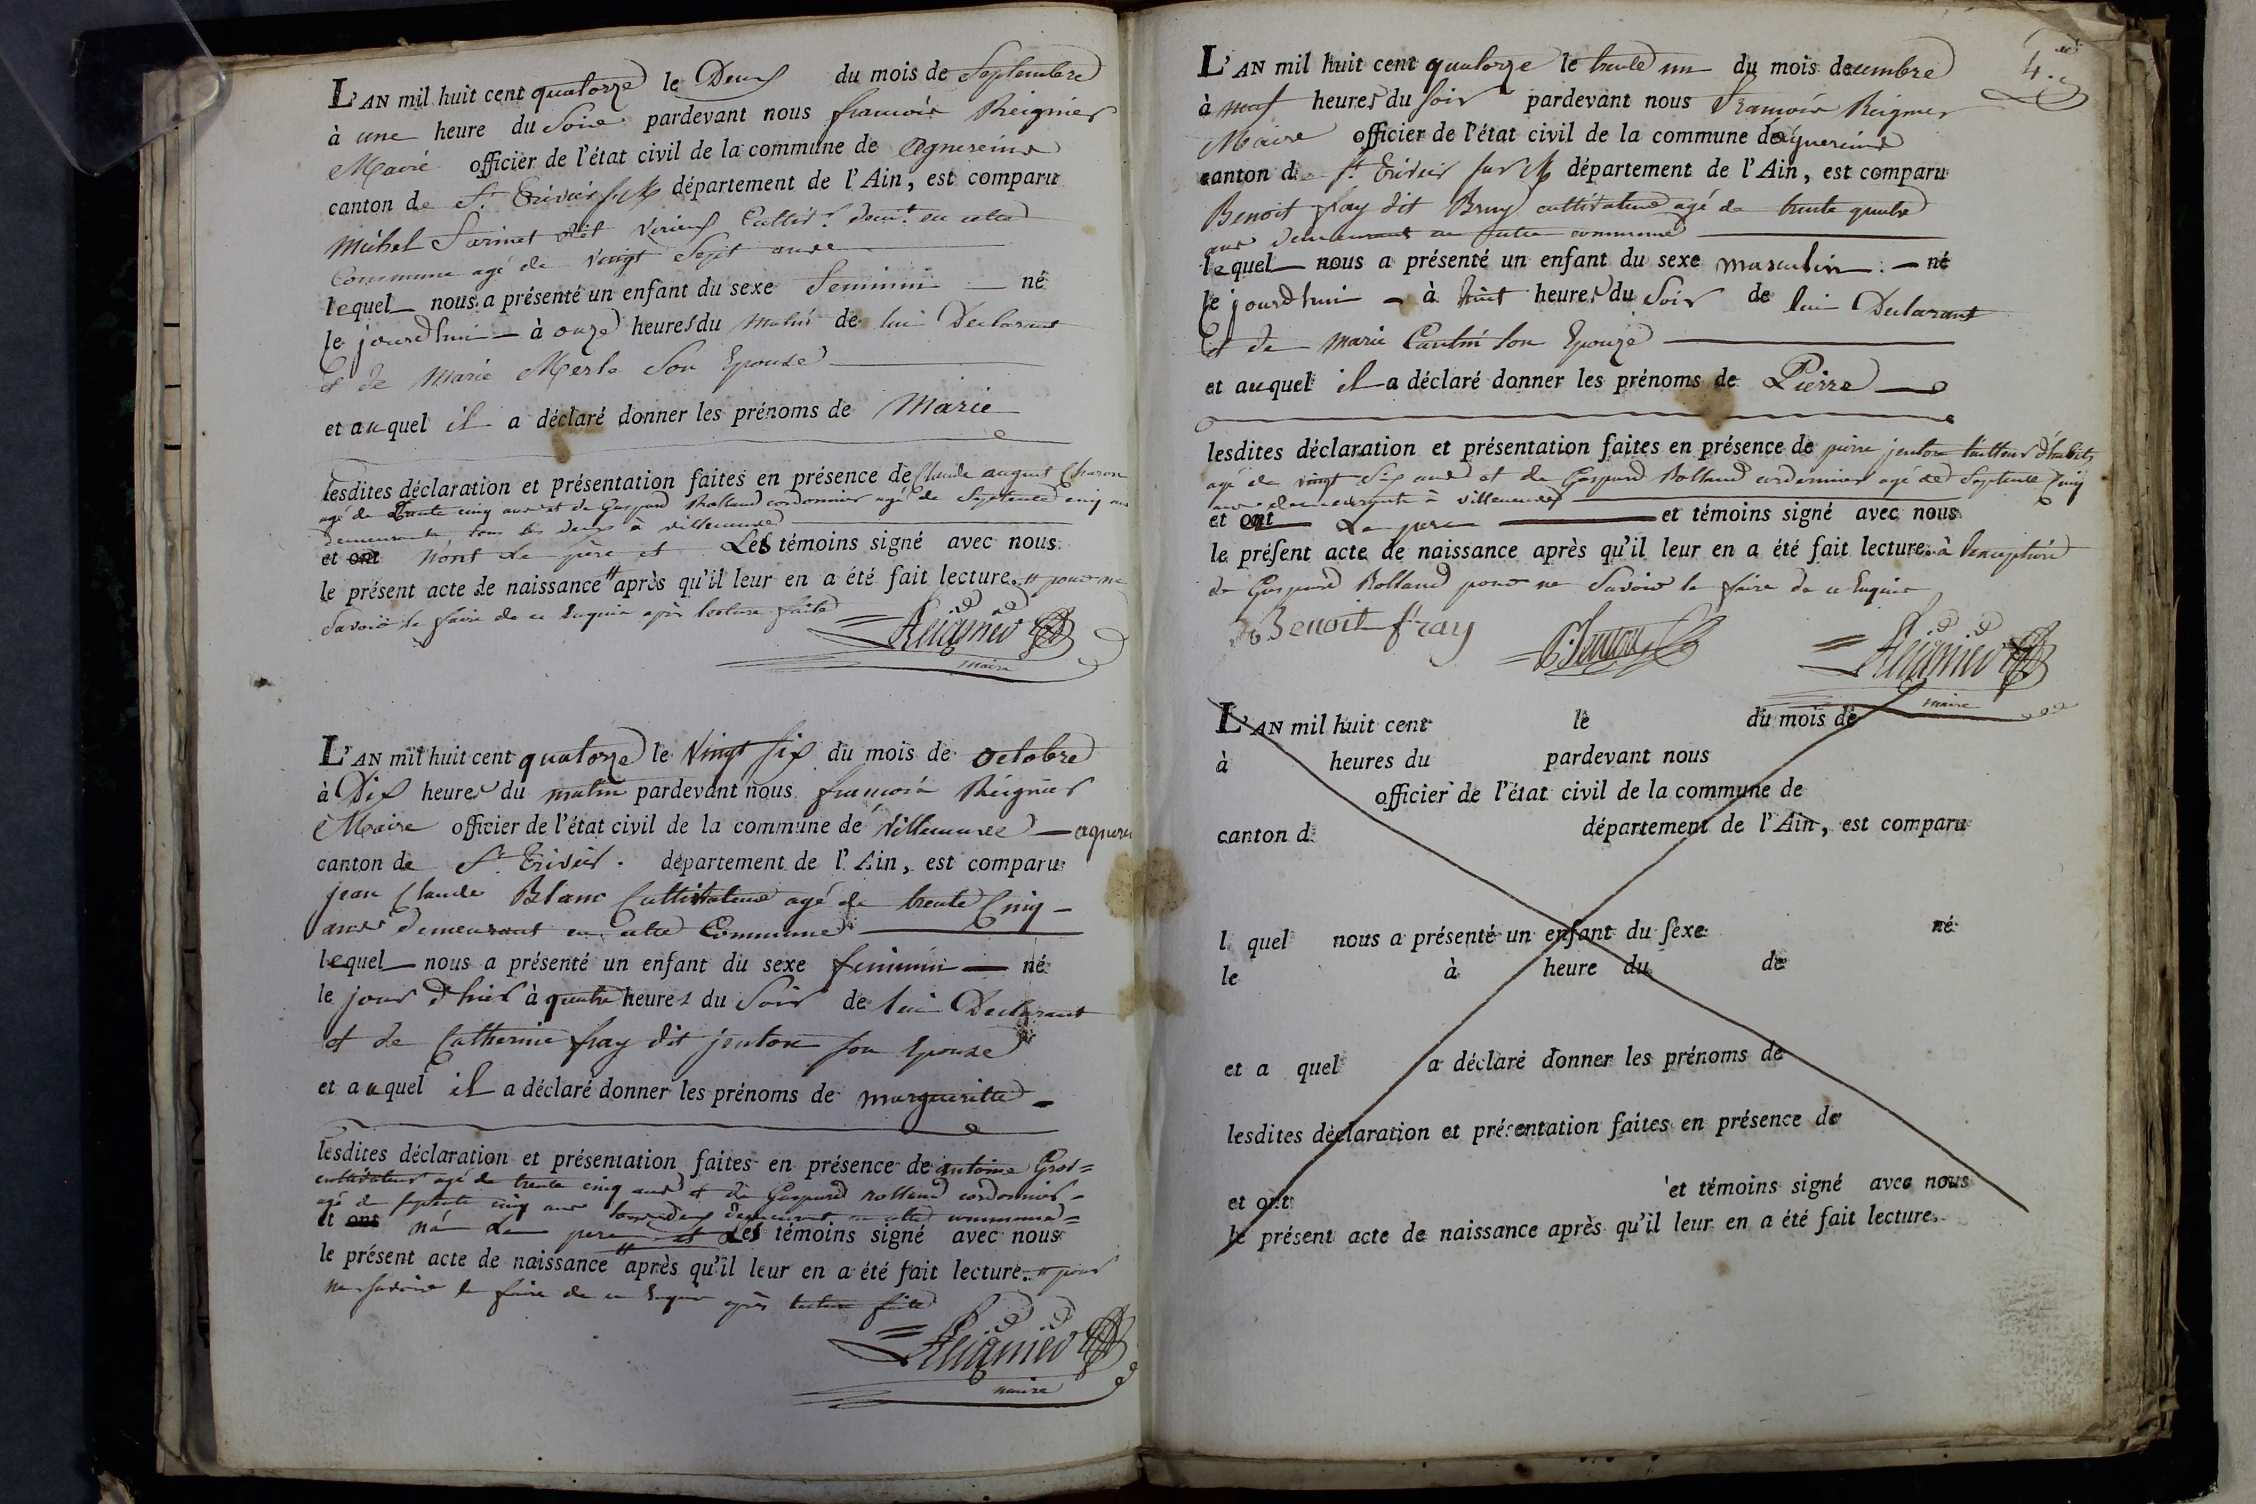 L'AN mil huit cent quatorze le Deux du mois de Septembre
à une heure du Soir pardevant nous françois Reignier
Maire officier de l'état civil de la commune de Agnereins
canton de St. Trivier département de l'Ain, est comparu
Michel Cultiv. dem.t en cette
Commune agé de vingt Sept ans
lequel nous a présenté un enfant du sexe feminin né
le jourdhui à onze heures du matin de lui Declarant
et de Marie Merle Son Epouse
et auquel il a déclaré donner les prénoms de Marie
lesdites déclaration et présentation faites en présence de Claude august Charon
agé de Trente cinq ans et de Gaspard Rolland cordonnier agé de Septente cinq ans
demeurants tous les deux à villeneuve
et ont n'ont Le père et Les témoins signé avec nous
le présent acte de naissance # après qu'il leur en a été fait lecture. # pour ne
Savoir le faire de ce Enquis après lecture faite
Reignier
maire
L'AN mil huit cent quatorze le vingt six du mois de octobre
à Dix heures du matin pardevant nous françois Reignier
Maire officier de l'état civil de la commune de villeneuve
canton de St. Trivier. département de l'Ain, est comparu
jean Claude Blanc Cultivateur agé de trente Cinq
ans demeurant en cette Commune
lequel nous a présenté un enfant du sexe feminin né
le jour d'hier à quatre heures du Soir de lui Declarant
et de Catherine fray dit jenton son Epouse
et auquel il a déclaré donner les prénoms de margueritte
lesdites déclaration et présentation faites en présence de antoine Gros
cultivateur agé de trente cinq ans et de Gaspard Rolland cordonnier
agé de septente cinq ans tous deux demeurant en cette commune
et ont Le pere et Les témoins signé avec nous
le présent acte de naissance # après qu'il leur en a été fait lecture. # pour
ne savoir le faire de ce Enquis après lecture faite
Reignier
maire
4.e
L'AN mil huit cent quatorze le trente un du mois decembre
à neuf heures du soir pardevant nous François Reignier
Maire officier de l'état civil de la commune de agnereins
canton de St. Trivier sur département de l'Ain, est comparu
Benoit fray dit Bruy cultivateur agé de trente quatre
ans demeurant en cette commune
lequel nous a présenté un enfant du sexe masculin né
le jourdhui à huit heures du Soir de lui Declarant
et de Marie Cantin son Epouze
et auquel il a déclaré donner les prénoms de Pierre
lesdites déclaration et présentation faites en présence de pierre jenton tailleur d'habits
agé de vingt Six ans et de Gaspard Rolland cordonnier agé de Septente Cinq
ans demeurants à villeneuve
et ont Le pere et témoins signé avec nous
le présent acte de naissance après qu'il leur en a été fait lecture à l'exception
de Gaspard Rolland pour ne Savoir le faire de ce Enquis
Benoit fray P. Jenton Reignier
maire
L'AN mil huit cent le du mois de
à heures du pardevant nous
officier de l'état civil de la commune de
canton d département de l'Ain, est comparu
l quel nous a présenté un enfant du sexe né
le à heure du de
et a quel a déclaré donner les prénoms de
lesdites déclaration et présentation faites en présence de
et ont et témoins signé avec nous
le présent acte de naissance après qu'il leur en a été fait lecture.